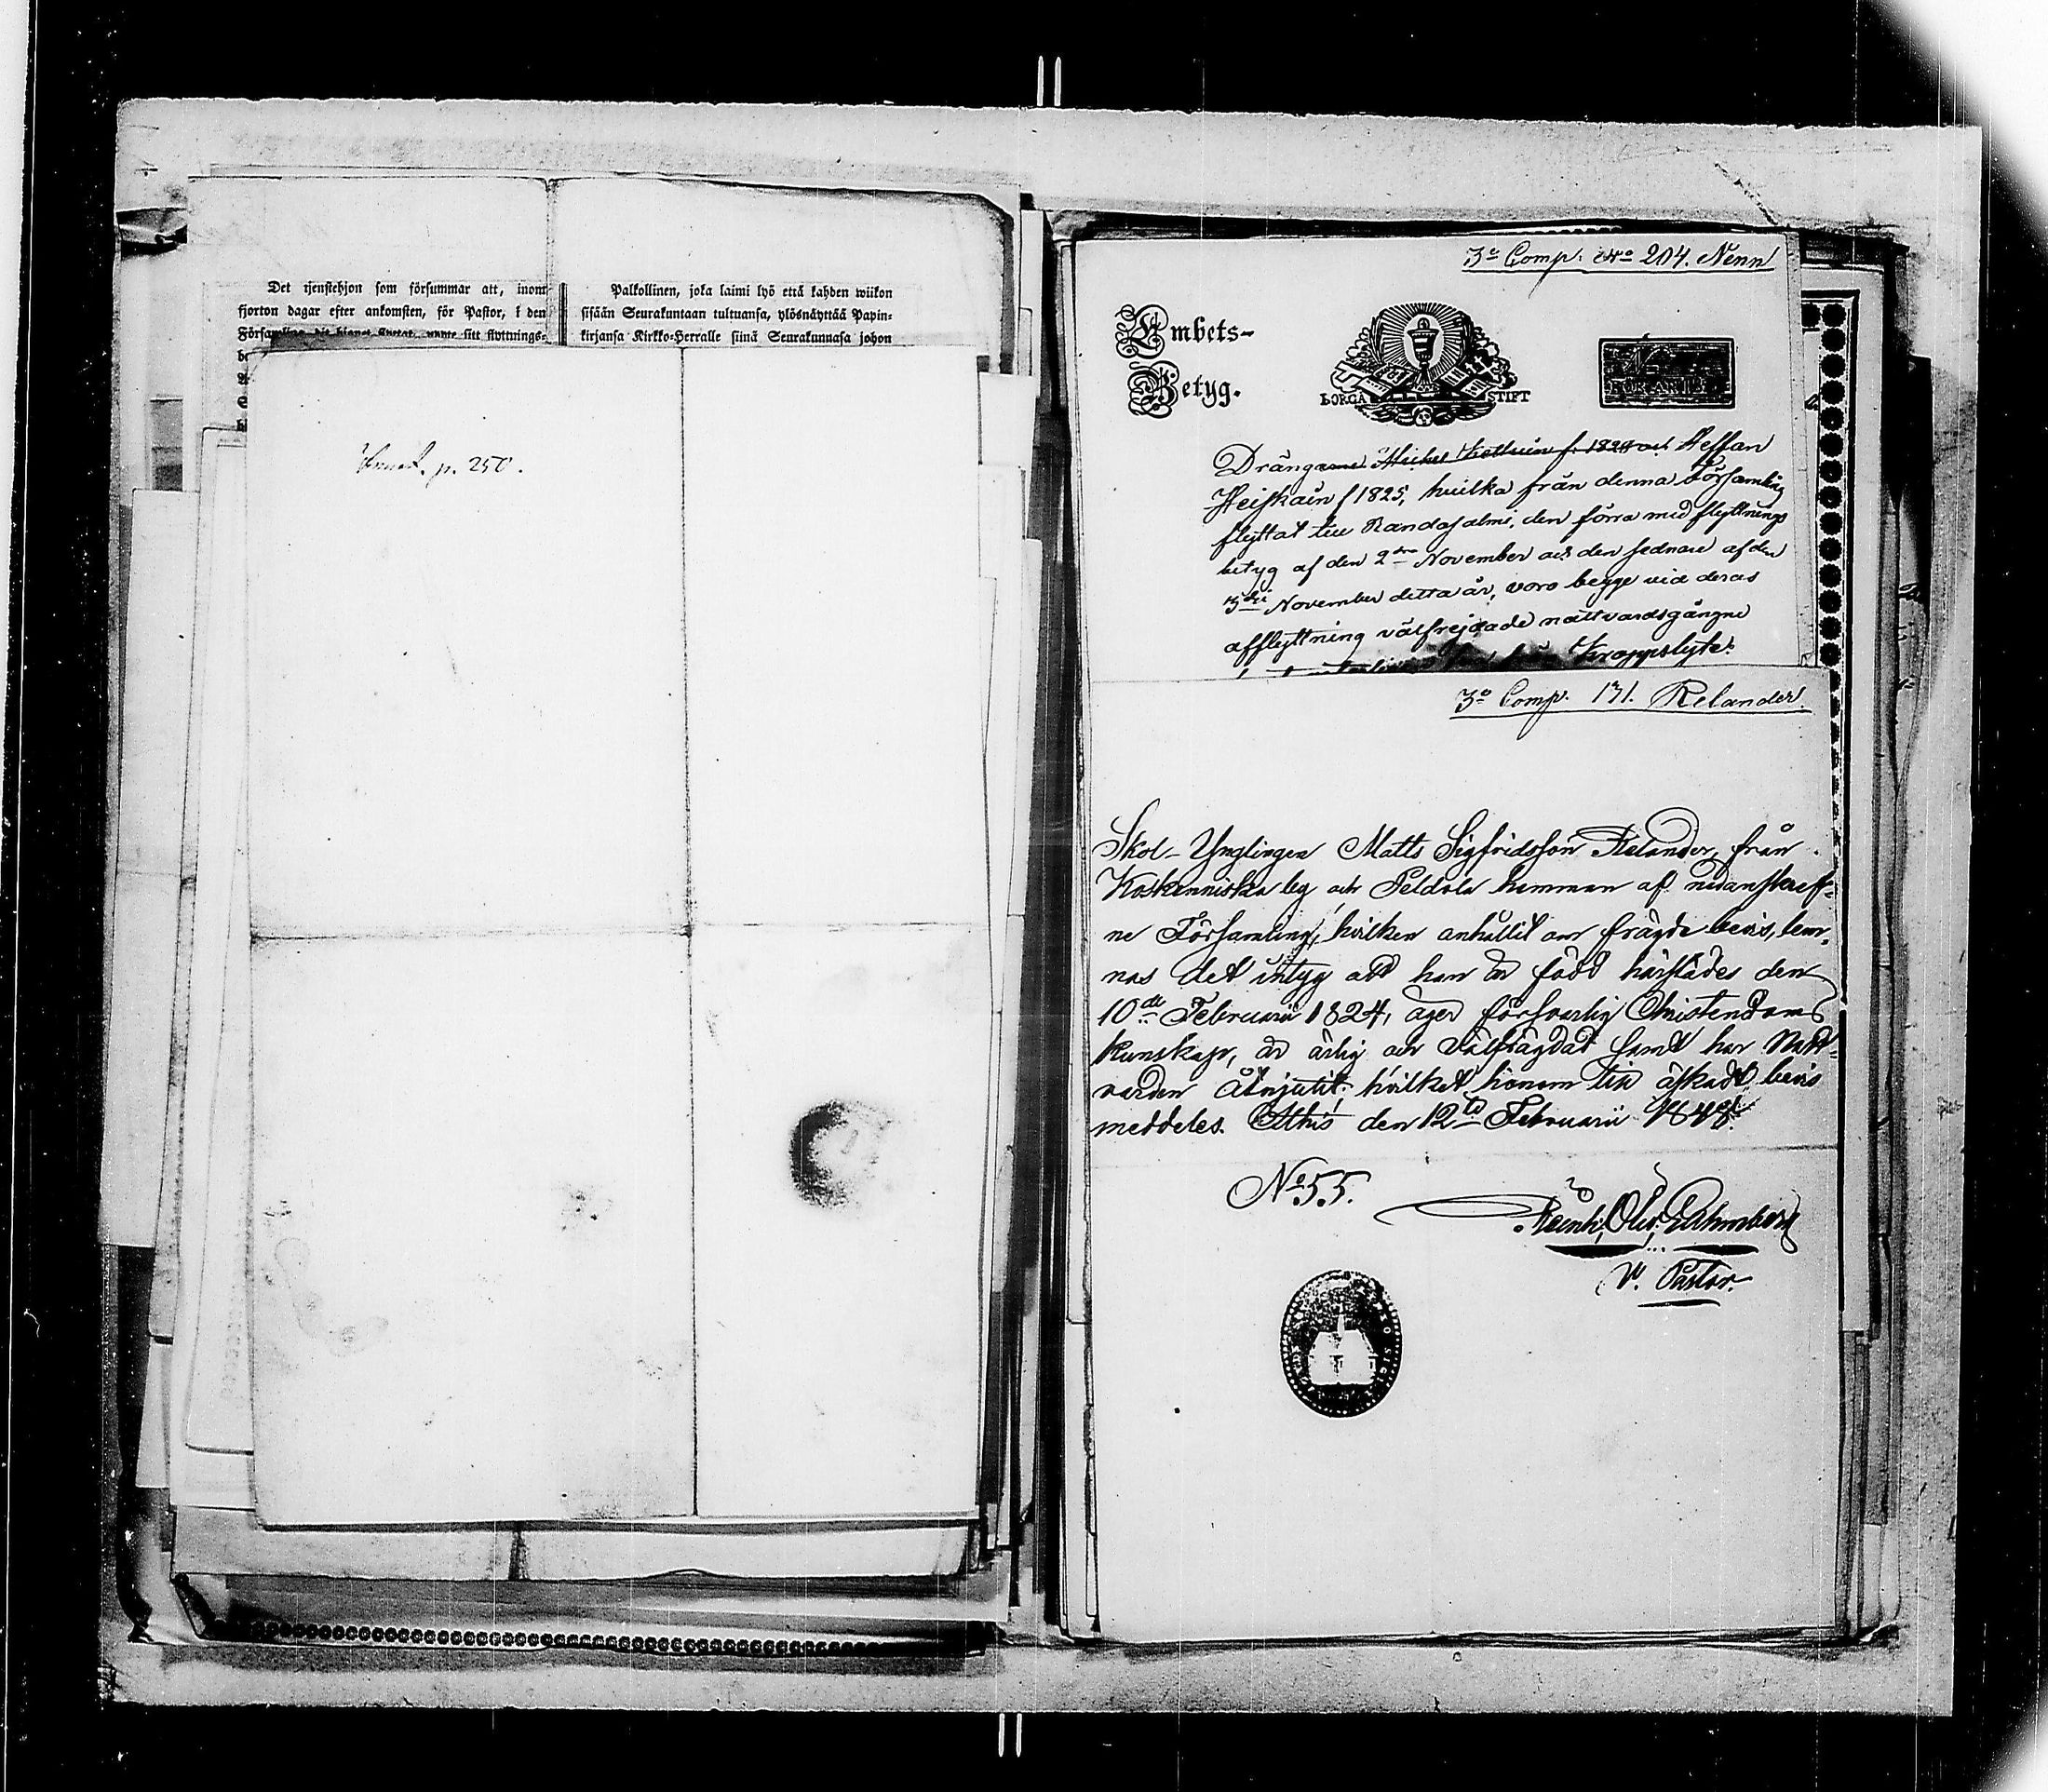 Det tjenstehjon som försummar att, inom
fjorton dagar efter ankomsten, för Pastor, i den
Församling, dit hjonet flyttat, uppte sitt flyttnings-
Palkollinen, joka laimi lyö että kahden wiikon
sisään Seurakuntaan tultuansa, ylösnäyttää Papin-
kirjansa Kirkko-Herralle siinä Seurakunnasa johon
p. 250.
3e Comp. No 204. Nenn
Embets-
Betyg.
BORGÅ STIFT
Drängarne Michel f. 1828 och Staffan
Heiskain f 1825, hvilka från denna Församling
flyttat till Randasalmi, den förra med flyttnings
betyg af den 2dra November och den sednare af den
3dje November detta år, voro begge vid deras
afflyttning välfrejdade nattvardsgångne
Kroppslyte.
3e Comp. 131. Relander.
Skol-Ynglingen Matts Sigfridsson Relander, från
Koskenniska by och Peldola hemman af nedanskref-
ne Församling, hvilken anhållit om frägde bevis, lem-
nas det intyg att han är född härstädes den
10de Februarii 1824, äger försvarlig Christendoms
kunskap, är ärlig och välfrägdad samt har Natt-
varden åtnjutit; hvilket honom till äskadt bevis
meddeles. den 12te Februarii 1848.
No 55.
Reinh. Olv. Ahmberg
V. Pastor.